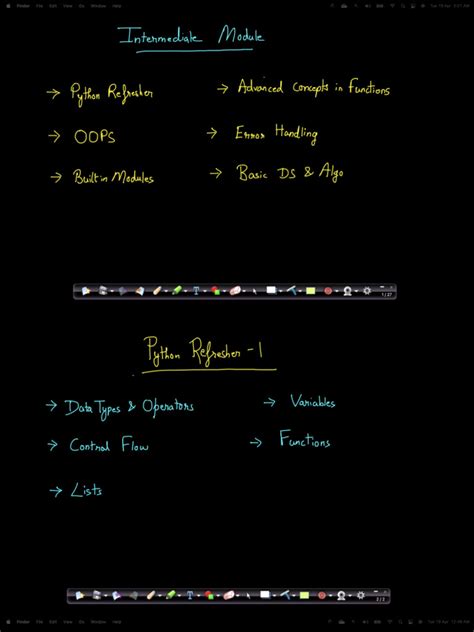 Finder File Edit View Go Window Help
Intermediate Module
→ Python Refresher
→ Advanced Concepts in Functions
→ OOPS
→ Error Handling
→ Built in Modules
→ Basic DS & Algo
1/27
Python Refresher - 1
→ Data Types & Operators
→ Variables
→ Control Flow
→ Functions
→ Lists
Finder File Edit View Go Window Help